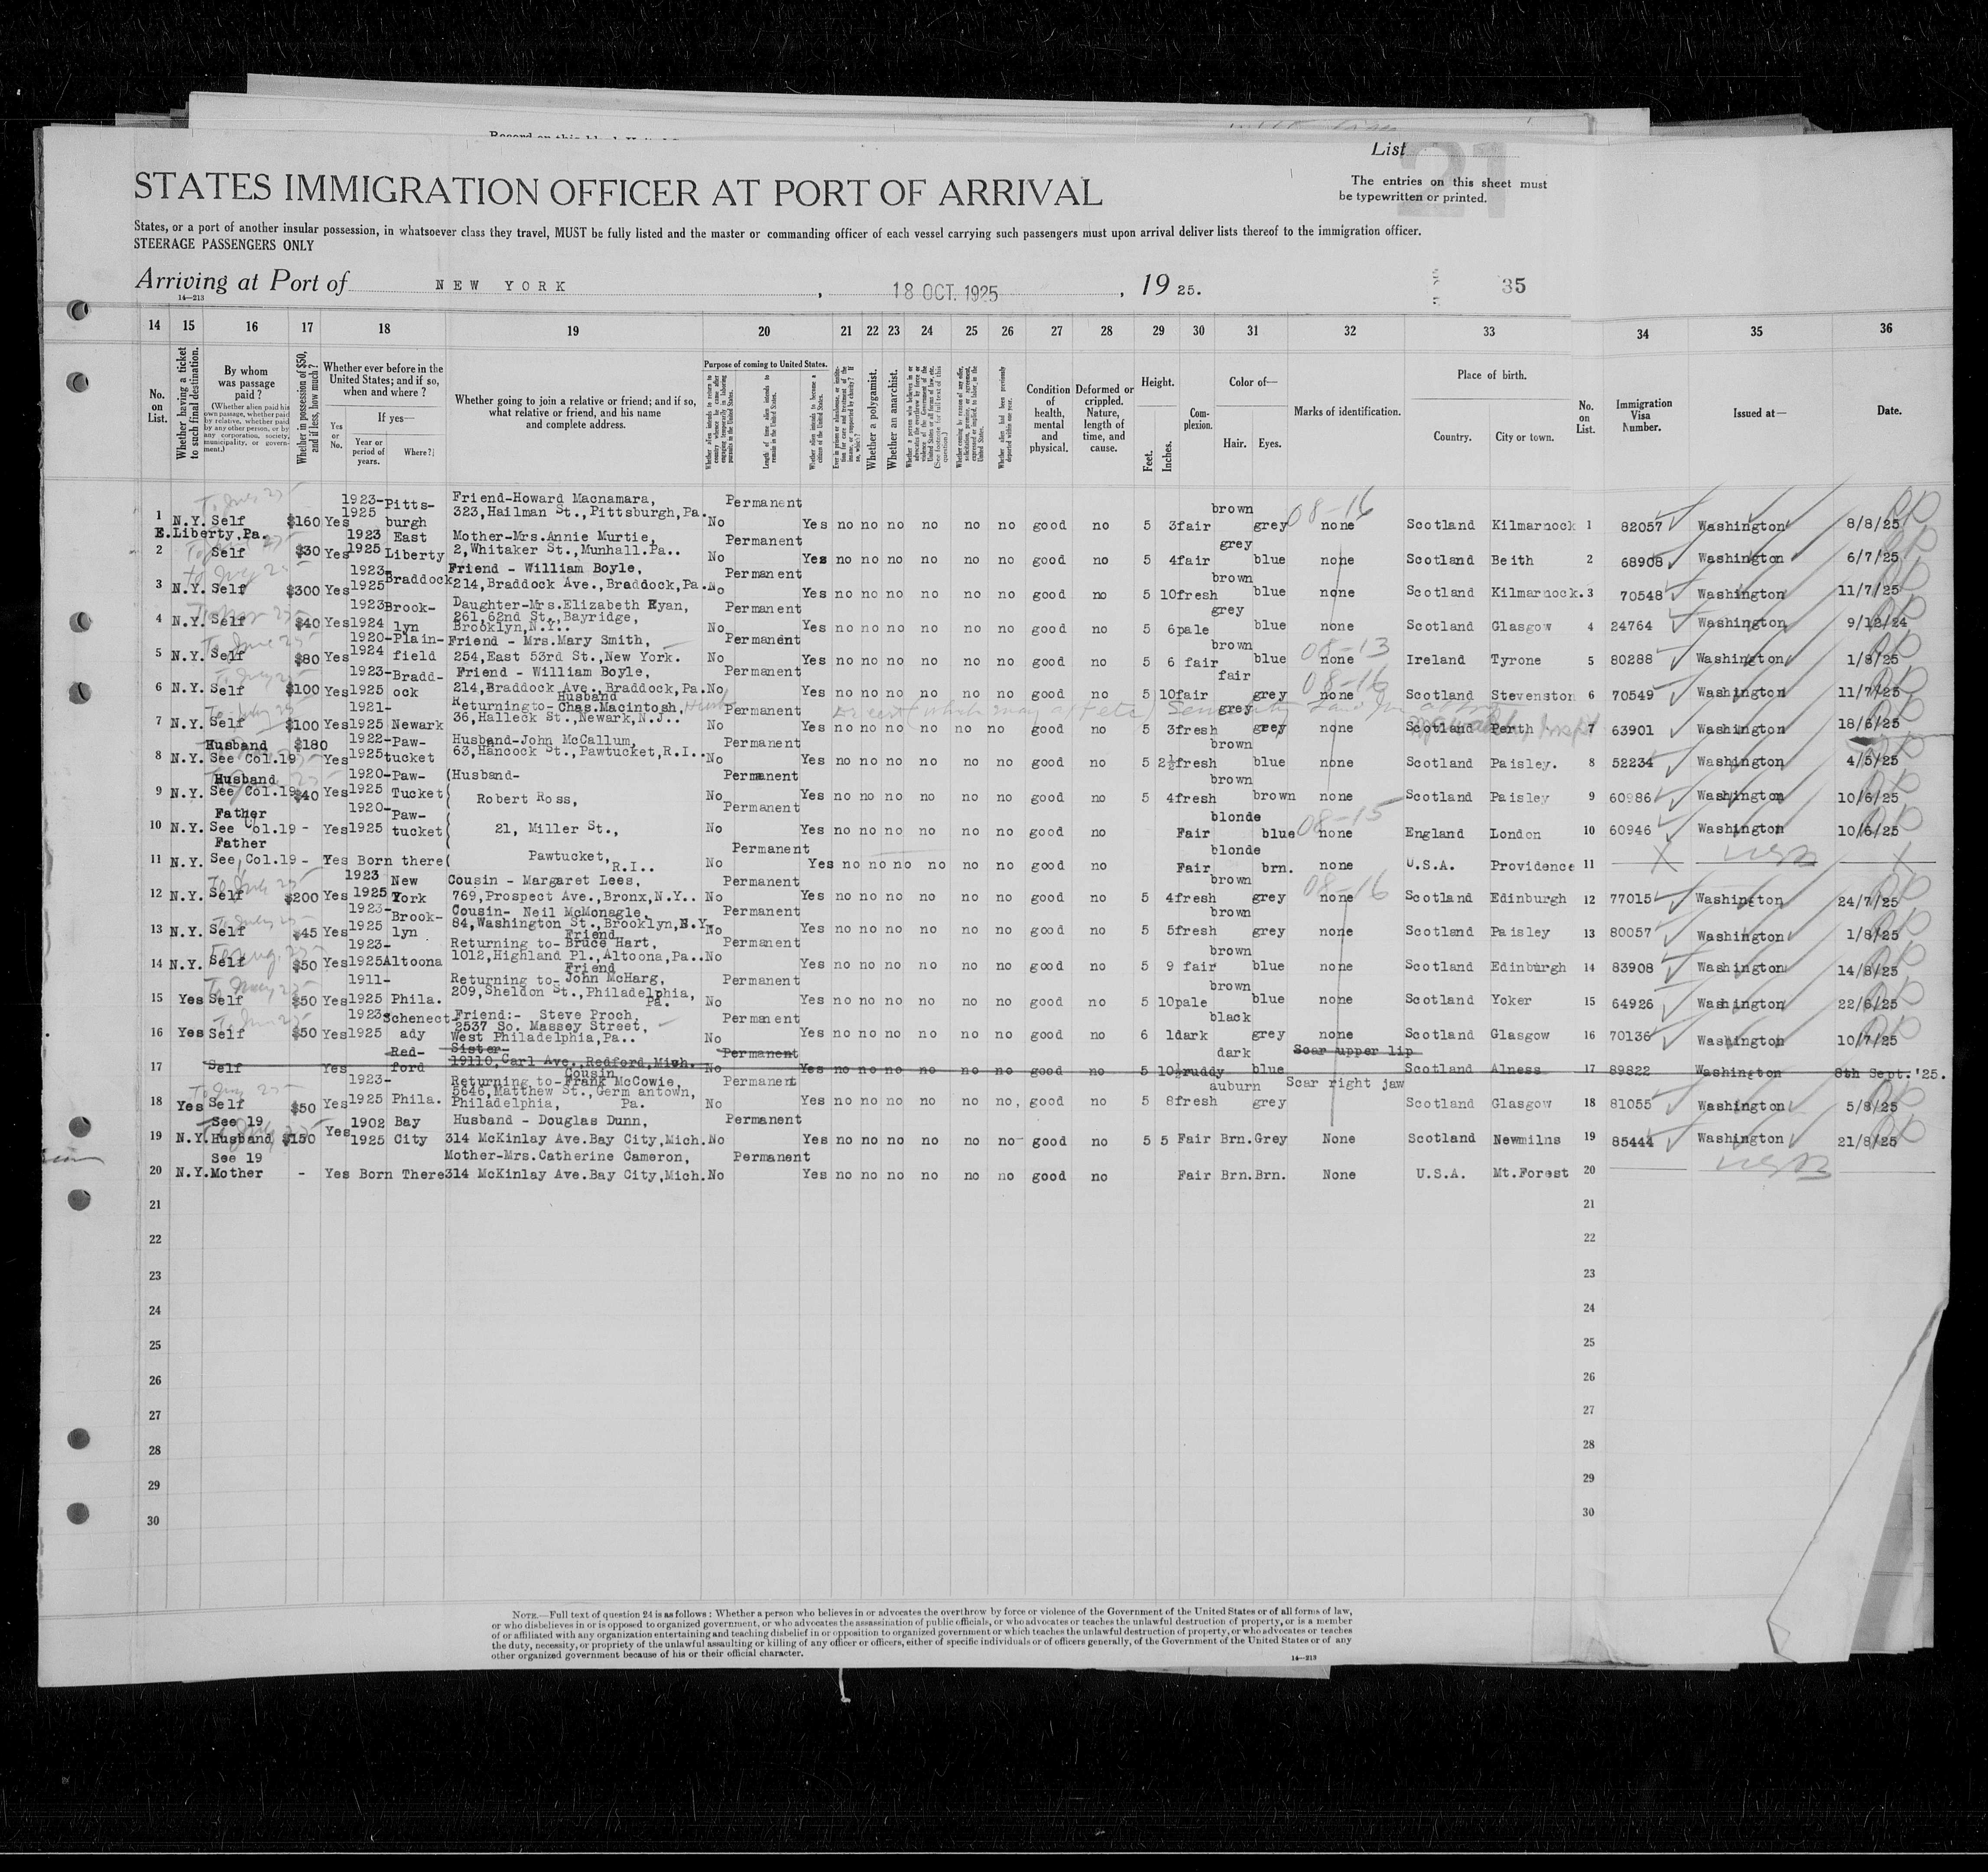 List
21
STATES IMMIGRATION OFFICER AT PORT OF ARRIVAL
The entries on this sheet must
be typewritten or printed.
States, or a port of another insular possession, in whatsoever class they travel, MUST be fully listed and the master or commanding officer of each vessel carrying such passengers must upon arrival deliver lists thereof to the immigration officer.
STEERAGE PASSENGERS ONLY
Arriving at Port of NEW YORK, 18 OCT. 1925, 1925.
35
14—213
14 15 16 17 18 19 20 21 22 23 24 25 26 27 28 29 30 31 32 33 34 35 36
No. on List.
Whether having a ticket to such final destination.
By whom was passage paid?
(Whether alien paid his own passage, whether paid by relative, whether paid by any other person, or by any corporation, society, municipality, or government.)
Whether in possession of $50, and if less, how much?
Whether ever before in the United States; and if so, when and where?
Yes or No.
If yes—
Year or period of years.
Where?
Whether going to join a relative or friend; and if so, what relative or friend, and his name and complete address.
Purpose of coming to United States.
Length of time alien intends to remain in the United States.
Whether alien intends to become a citizen of the United States.
Whether a polygamist.
Whether an anarchist.
Condition of health, mental and physical.
Deformed or crippled. Nature, length of time, and cause.
Height.
Feet. Inches.
Complexion.
Color of—
Hair. Eyes.
Marks of identification.
Place of birth.
Country. City or town.
No. on List.
Immigration Visa Number.
Issued at—
Date.
1 N.Y. Self $160 Yes 1923-1925 Pittsburgh Friend-Howard Macnamara, 323,Hailman St.,Pittsburgh,Pa. No Permanent Yes no no no no no no good no 5 3 fair brown grey none Scotland Kilmarnock 1 82057 Washington 8/8/25
08-16
2 E.Liberty,Pa. Self $30 Yes 1923 1925 East Liberty Mother-Mrs.Annie Murtie, 2,Whitaker St.,Munhall.Pa.. No Permanent Yes no no no no no no good no 5 4 fair grey blue none Scotland Beith 2 68908 Washington 6/7/25
3 N.Y. Self $300 Yes 1923-1925 Braddock Friend - William Boyle, 214,Braddock Ave.,Braddock,Pa. No Permanent Yes no no no no no no good no 5 10 fresh brown blue none Scotland Kilmarnock. 3 70548 Washington 11/7/25
4 N.Y. Self $40 Yes 1923 1924 Brooklyn Daughter-Mrs.Elizabeth Ryan, 261,62nd St.,Bayridge, Brooklyn,N.Y.. No Permanent Yes no no no no no no good no 5 6 pale grey blue none Scotland Glasgow 4 24764 Washington 9/12/24
5 N.Y. Self $80 Yes 1920-1924 Plain-field Friend - Mrs.Mary Smith, 254,East 53rd St.,New York. No Permanent Yes no no no no no no good no 5 6 fair brown blue none Ireland Tyrone 5 80288 Washington 1/8/25
08-13
6 N.Y. Self $100 Yes 1923-1925 Bradd-ock Friend - William Boyle, 214,Braddock Ave.,Braddock,Pa. No Permanent Yes no no no no no no good no 5 10 fair fair grey none Scotland Stevenston 6 70549 Washington 11/7/25
08-16
7 N.Y. Self $100 Yes 1921-1925 Newark Returning to- Husband Chas.Macintosh, 36,Halleck St.,Newark,N.J.. No Permanent Yes no no no no no no good no 5 3 fresh grey grey none Scotland Perth 7 63901 Washington 18/6/25
8 N.Y. Husband See Col.19 $180 Yes 1922-1925 Paw-tucket Husband-John McCallum, 63,Hancock St.,Pawtucket,R.I.. No Permanent Yes no no no no no no good no 5 2½ fresh brown blue none Scotland Paisley. 8 52234 Washington 4/5/25
9 N.Y. Husband See Col.19 $40 Yes 1920-1925 Paw-Tucket (Husband- Robert Ross, No Permanent Yes no no no no no no good no 5 4 fresh brown brown none Scotland Paisley 9 60986 Washington 10/6/25
10 N.Y. Father See Col.19 - Yes 1920-1925 Paw-tucket 21, Miller St., No Permanent Yes no no no no no no good no Fair blonde blue none England London 10 60946 Washington 10/6/25
08-15
11 N.Y. Father See Col.19 - Yes Born there Pawtucket, R.I.. No Permanent Yes no no no no no no good no Fair blonde brn. none U.S.A. Providence 11 X USB X
12 N.Y. Self $200 Yes 1923 1925 New York Cousin - Margaret Lees, 769,Prospect Ave.,Bronx,N.Y.. No Permanent Yes no no no no no no good no 5 4 fresh brown grey none Scotland Edinburgh 12 77015 Washington 24/7/25
08-16
13 N.Y. Self $45 Yes 1923-1925 Brook-lyn Cousin- Neil McMonagle, 84,Washington St.,Brooklyn,N.Y. No Permanent Yes no no no no no no good no 5 5 fresh brown grey none Scotland Paisley 13 80057 Washington 1/8/25
14 N.Y. Self $50 Yes 1923-1925 Altoona Returning to- Friend Bruce Hart, 1012,Highland Pl.,Altoona,Pa.. No Permanent Yes no no no no no no good no 5 9 fair brown blue none Scotland Edinburgh 14 83908 Washington 14/8/25
15 Yes Self $50 Yes 1911-1925 Phila. Returning to- Friend John McHarg, 209,Sheldon St.,Philadelphia, Pa. No Permanent Yes no no no no no no good no 5 10 pale brown blue none Scotland Yoker 15 64926 Washington 22/6/25
16 Yes Self $50 Yes 1923-1925 Schenect-ady Friend:- Steve Proch, 2537 So. Massey Street, West Philadelphia,Pa.. No Permanent Yes no no no no no no good no 6 1 dark black grey none Scotland Glasgow 16 70136 Washington 10/7/25
17 Self Yes Red-ford Sister- 19110,Carl Ave.,Redford,Mich. No Permanent Yes no no no no no no good no 5 10½ ruddy dark blue Scar upper lip Scotland Alness 17 89822 Washington 8th Sept.'25.
18 Yes Self $50 Yes 1923-1925 Phila. Returning to- Cousin Frank McCowie, 5646,Matthew St.,Germantown, Philadelphia, Pa. No Permanent Yes no no no no no no, good no 5 8 fresh auburn grey Scar right jaw Scotland Glasgow 18 81055 Washington 5/8/25
19 N.Y. See 19 Husband $150 Yes 1902 1925 Bay City Husband - Douglas Dunn, 314 McKinlay Ave.Bay City,Mich. No Permanent Yes no no no no no no good no 5 5 Fair Brn. Grey None Scotland Newmilns 19 85444 Washington 21/8/25
20 N.Y. See 19 Mother - Yes Born There Mother-Mrs.Catherine Cameron, 314 McKinlay Ave.Bay City,Mich. No Permanent Yes no no no no no no good no Fair Brn. Brn. None U.S.A. Mt.Forest 20 USB
21 21
22 22
23 23
24 24
25 25
26 26
27 27
28 28
29 29
30 30
NOTE.—Full text of question 24 is as follows: Whether a person who believes in or advocates the overthrow by force or violence of the Government of the United States or of all forms of law,
or who disbelieves in or is opposed to organized government, or who advocates the assassination of public officials, or who advocates or teaches the unlawful destruction of property, or is a member
of or affiliated with any organization entertaining and teaching disbelief in or opposition to organized government or which teaches the unlawful destruction of property, or who advocates or teaches
the duty, necessity, or propriety of the unlawful assaulting or killing of any officer or officers, either of specific individuals or of officers generally, of the Government of the United States or of any
other organized government because of his or their official character.
14—213